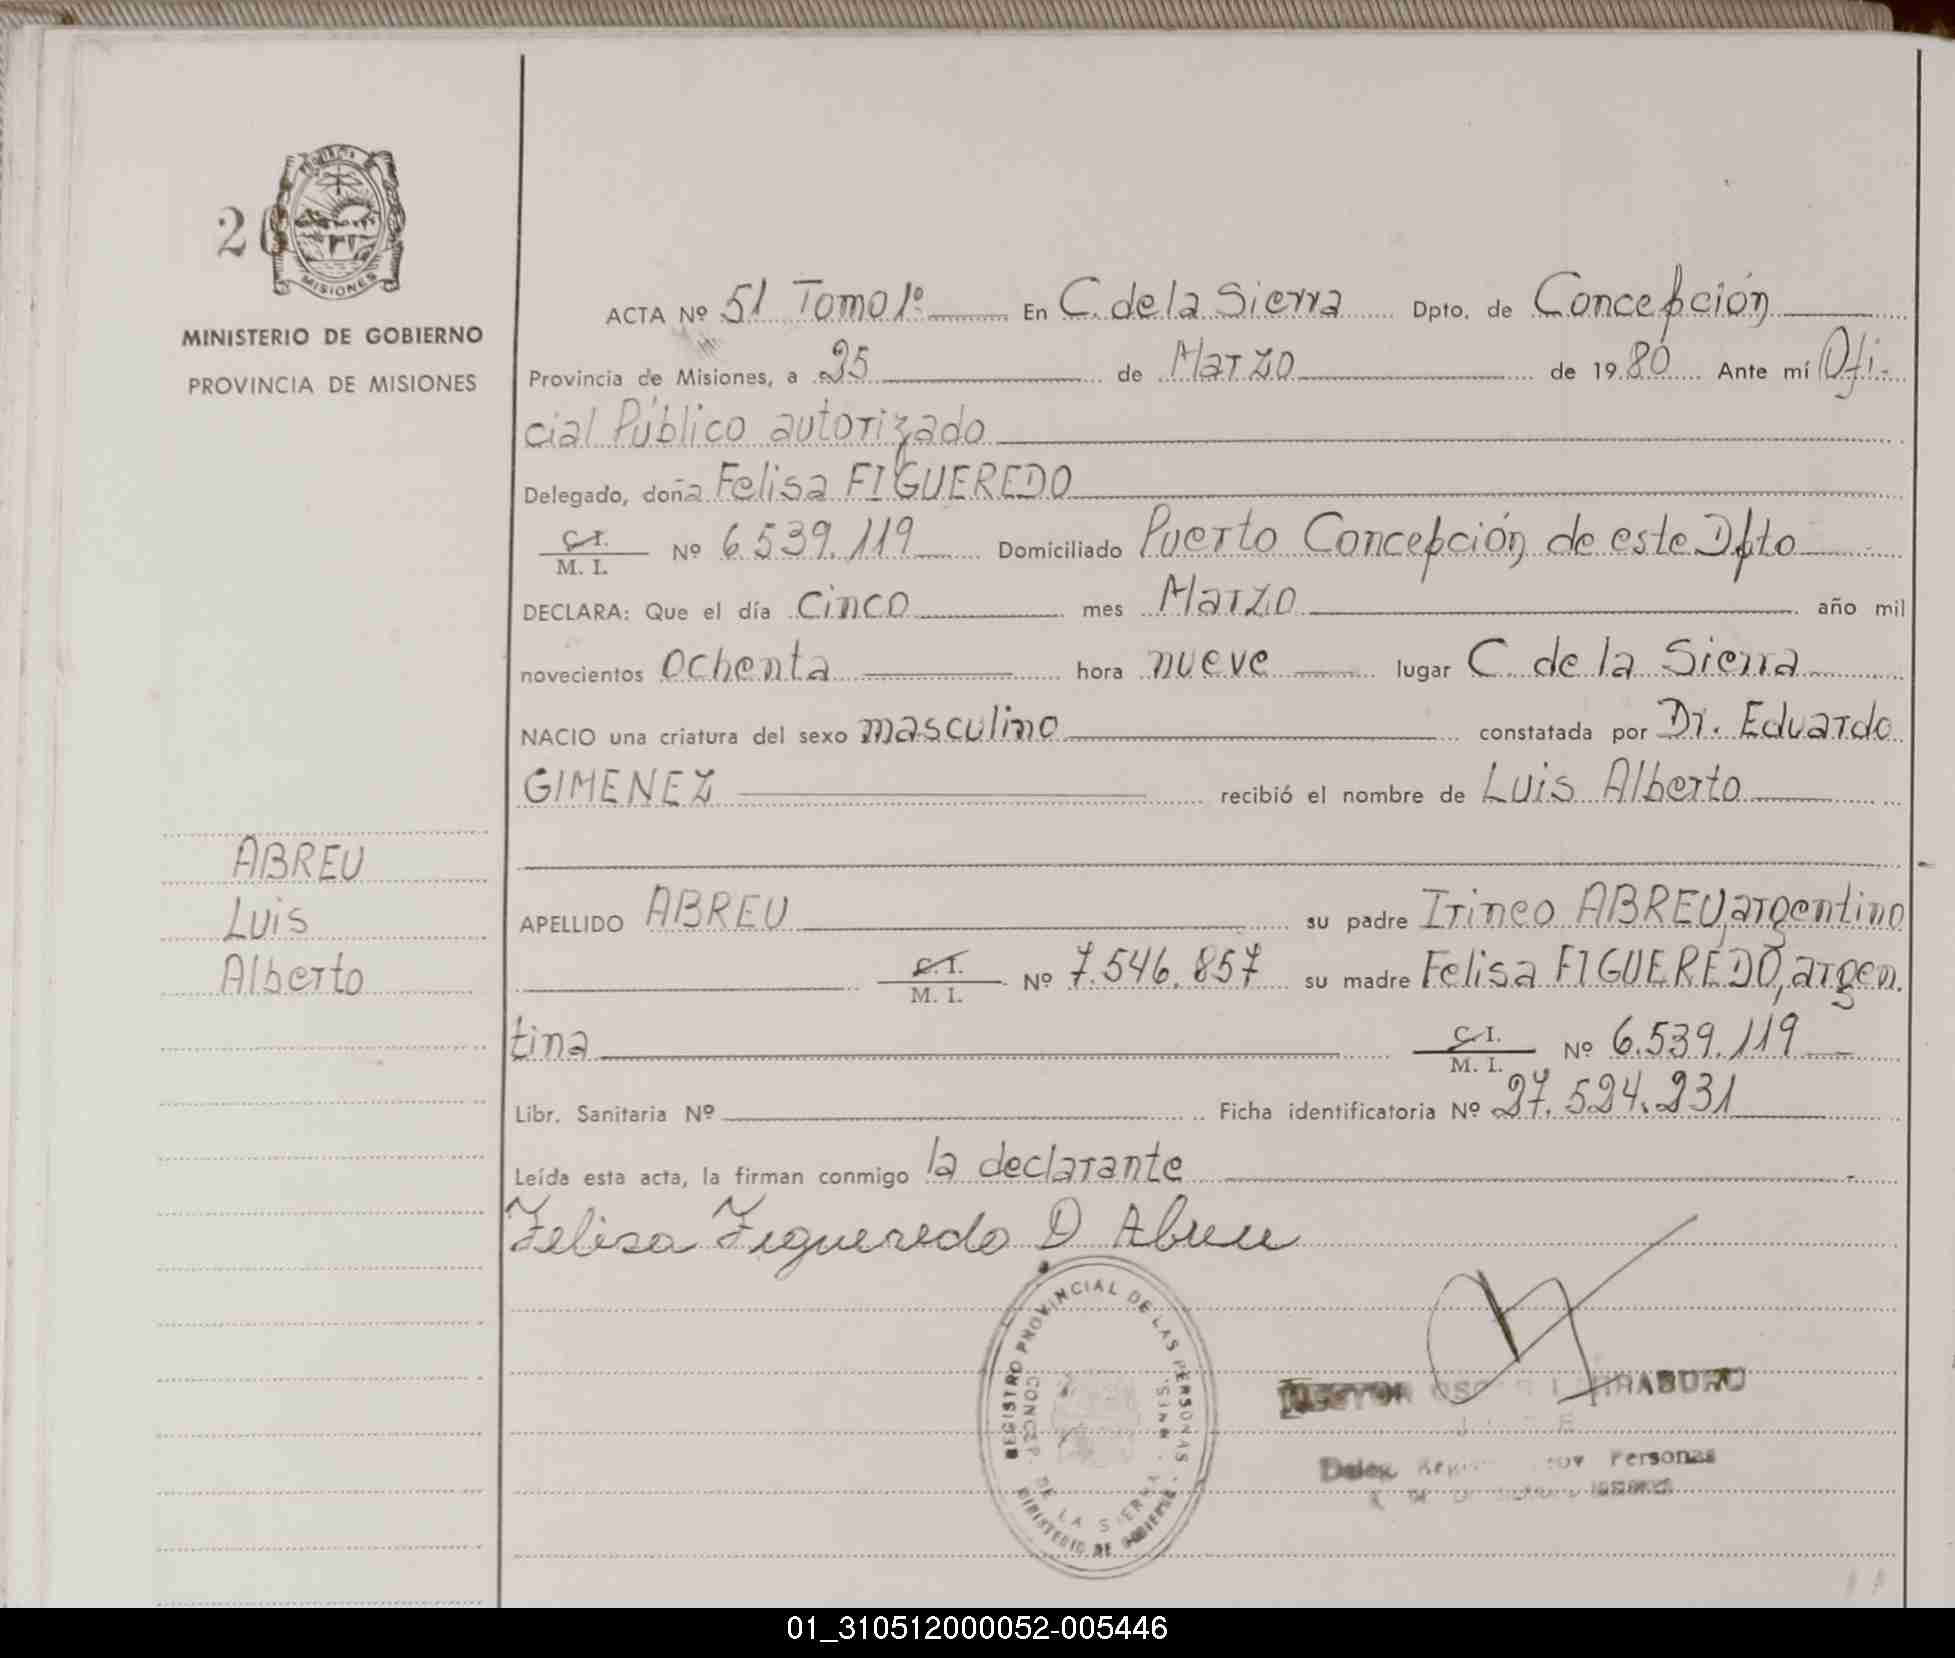 26
PROVINCIA
MISIONES
MINISTERIO DE GOBIERNO
PROVINCIA DE MISIONES
ABREU
Luis
Alberto
ACTA Nº 51 Tomo 1º En C. de la Sierra Dpto. de Concepción
Provincia de Misiones, a 25 de Marzo de 1980 Ante mí Ofi-
cial Público autorizado
Delegado, doña Felisa FIGUEREDO
C. I.
M. I. Nº 6.539.119 Domiciliado Puerto Concepción de este Dpto
DECLARA: Que el día cinco mes Marzo año mil
novecientos ochenta hora nueve lugar C. de la Sierra
NACIO una criatura del sexo masculino constatada por Dr. Eduardo
GIMENEZ recibió el nombre de Luis Alberto
APELLIDO ABREU su padre Irineo ABREU, argentino
C. I.
M. I. Nº 7.546.857 su madre Felisa FIGUEREDO, argen.
tina C. I.
M. I. Nº 6.539.119
Libr. Sanitaria Nº Ficha identificatoria Nº 27.524.231
Leída esta acta, la firman conmigo la declarante
Felisa Figueredo D Abreu
REGISTRO PROVINCIAL DE LAS PERSONAS
CONCEP. DE LA SIERRA
MINISTERIO DE GOBIERNO
Personas
01_310512000052-005446